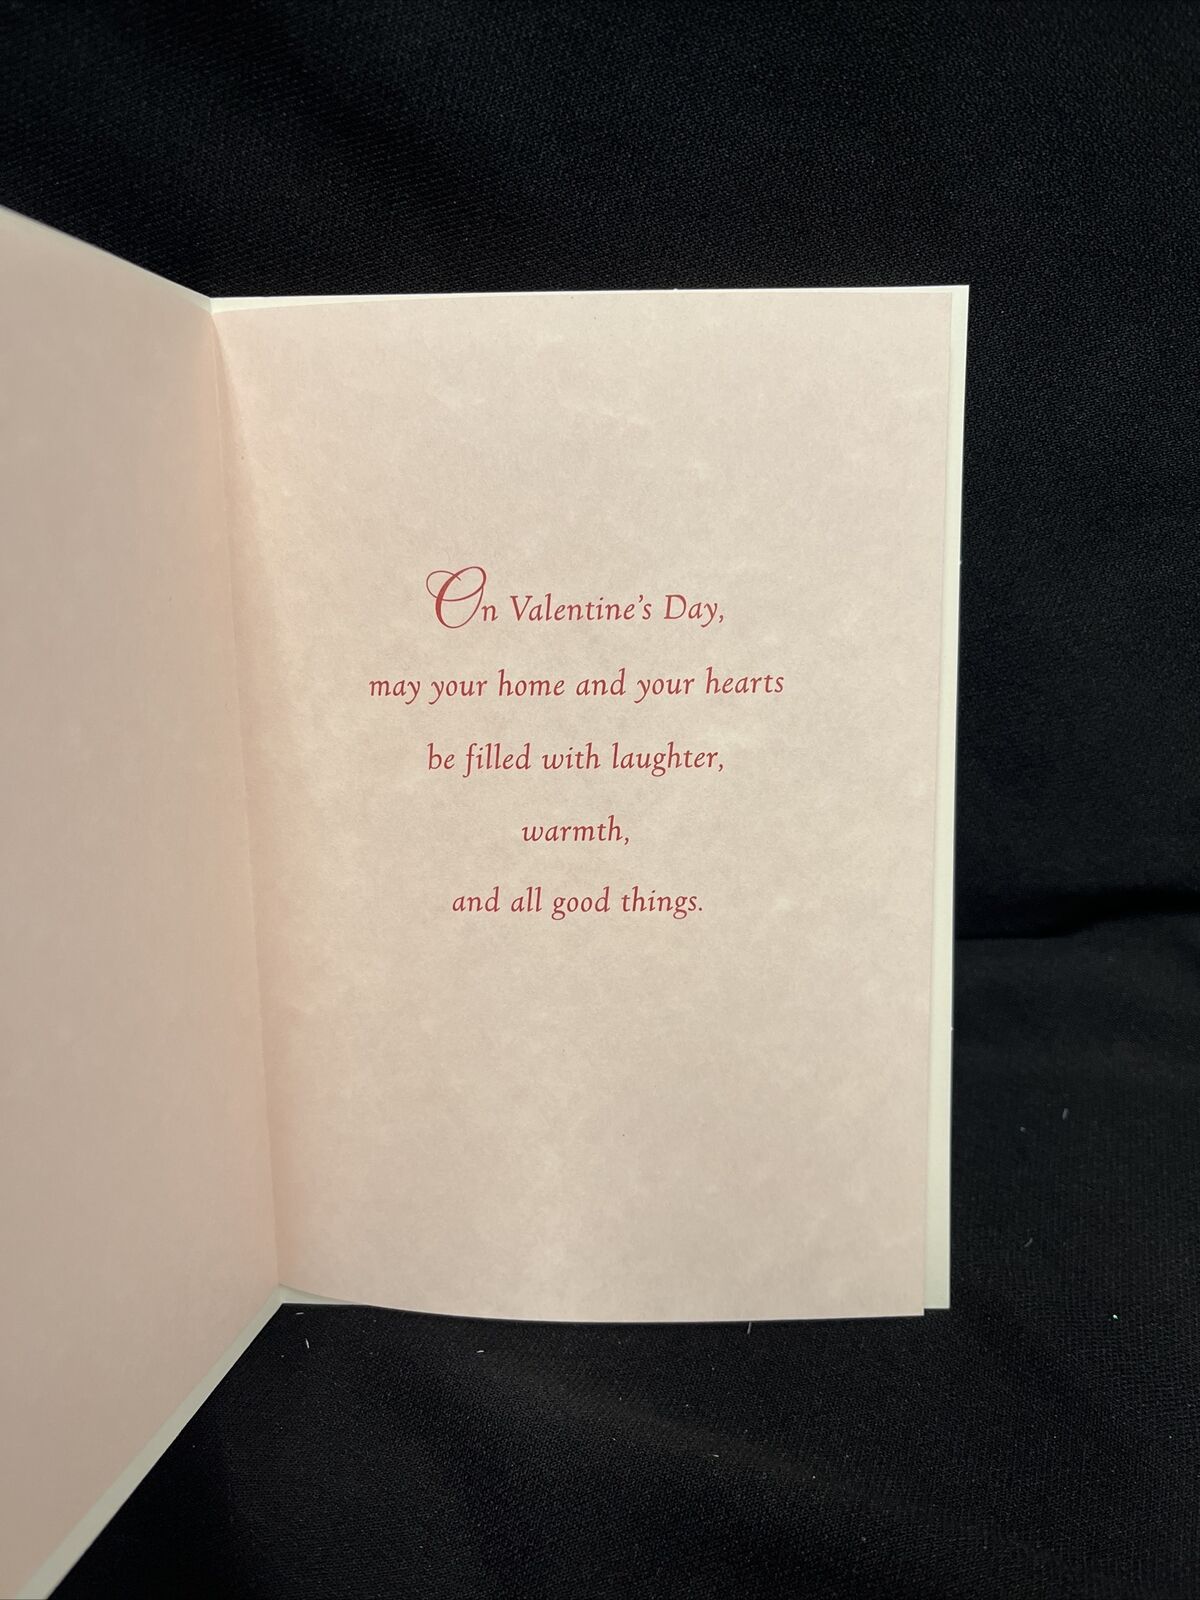 On Valentine's Day,
may your home and your hearts
be filled with laughter,
warmth,
and all good things.